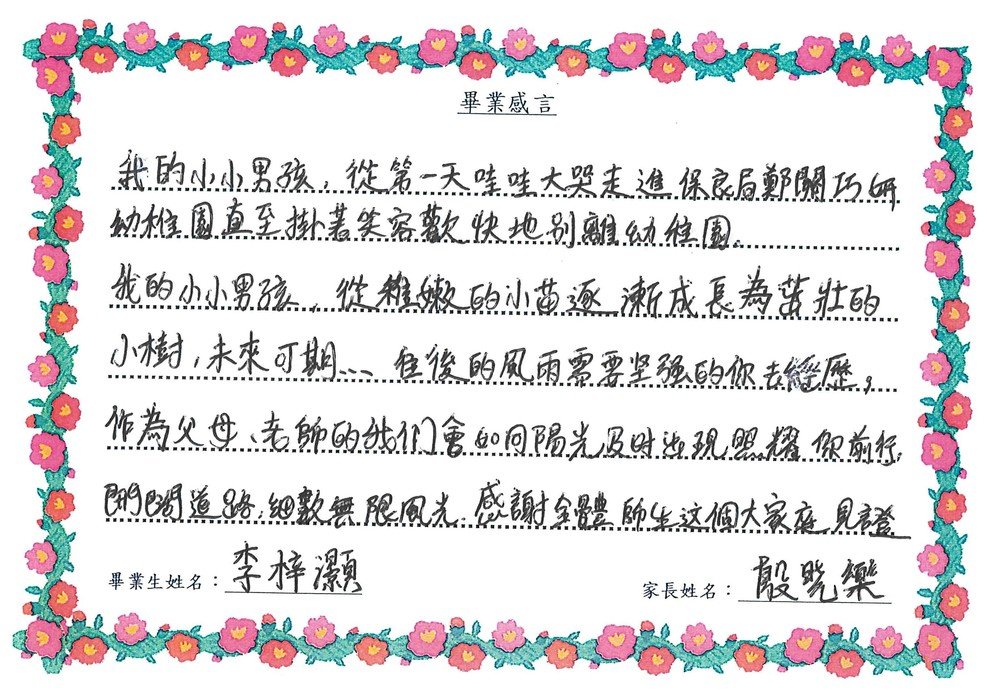 畢業感言
我的小小男孩，從第一天哇哇大哭走進保良局鄭關巧妍
幼稚園直至掛著笑容歡快地別離幼稚園。
我的小小男孩，從稚嫩的小苗逐漸成長為茁壯的
小樹，未來可期... 往後的風雨需要坚强的你去經歷，
作為父母、老師的我们會如同陽光及时出現照耀你前行，
開闢道路，細數無限風光。感謝全體師生这個大家庭見證
畢業生姓名：李梓灝
家長姓名：殷晓樂